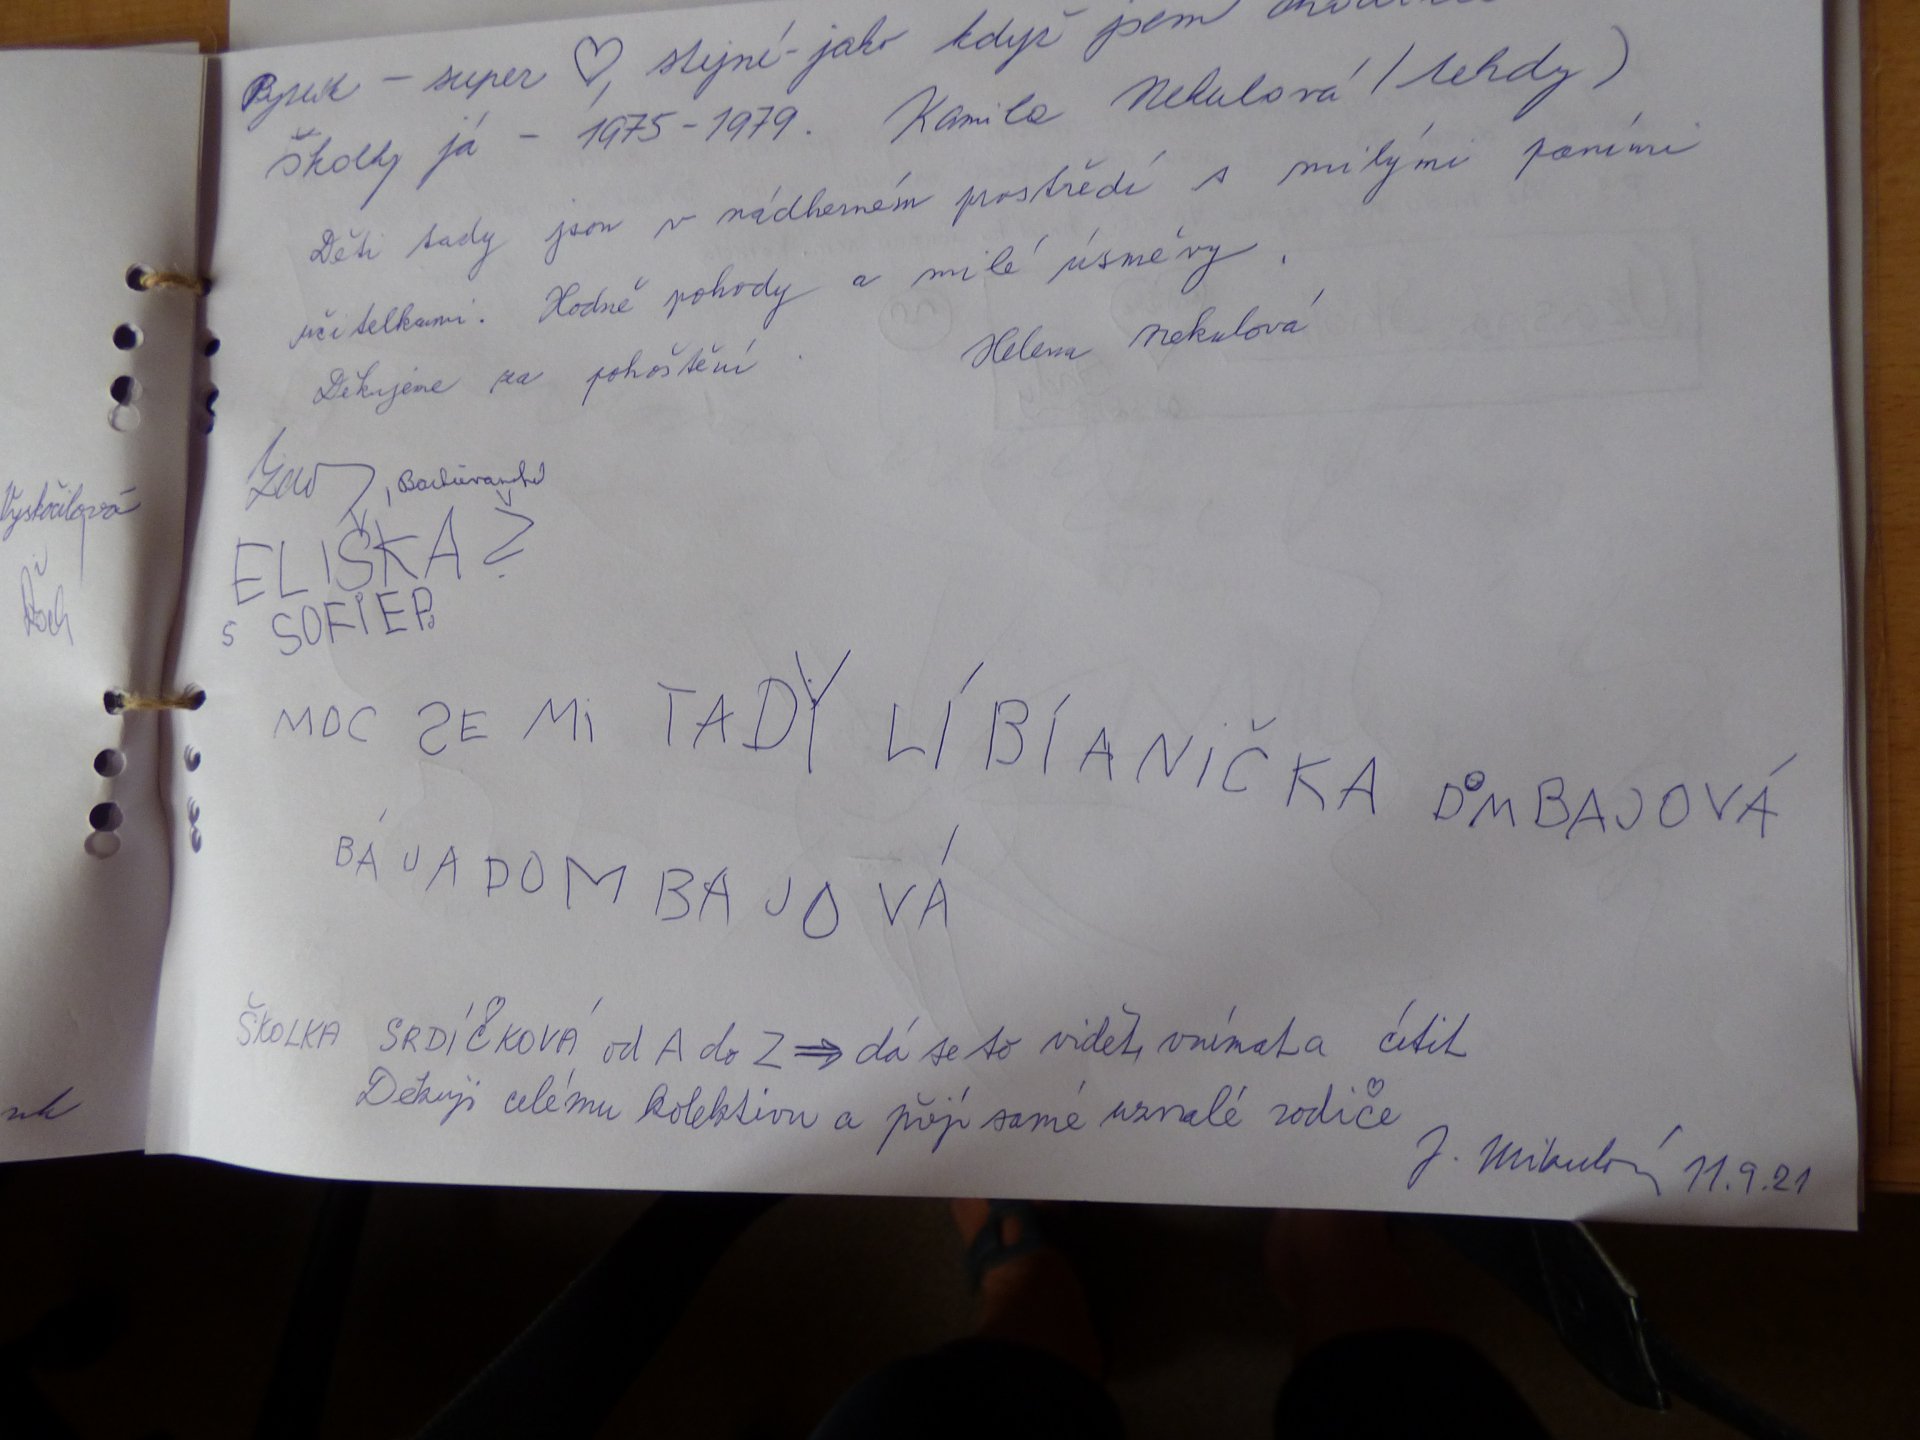 – super ♡, stejné - jako když jsem
školky já - 1975-1979. Kamila Nekulová (tehdy)
Děti tady jsou v nádherném prostředí s milými paními
učitelkami. Hodně pohody a milé úsměvy.
Děkujeme za pohoštění. Helena Nekulová
Vyskočilová
ELIŠKA Ž
S SOFIEP.
MOC SE MI TADY LÍBÍ ANIČKA DOMBAJOVÁ
BÁJA DOMBAJOVÁ
ŠKOLKA SRDÍČKOVÁ od A do Z ⇒ dá se to vidět, vnímat a cítit
Děkuji celému kolektivu a přeji samé uznalé rodiče
J. Mikulová 11.9.21